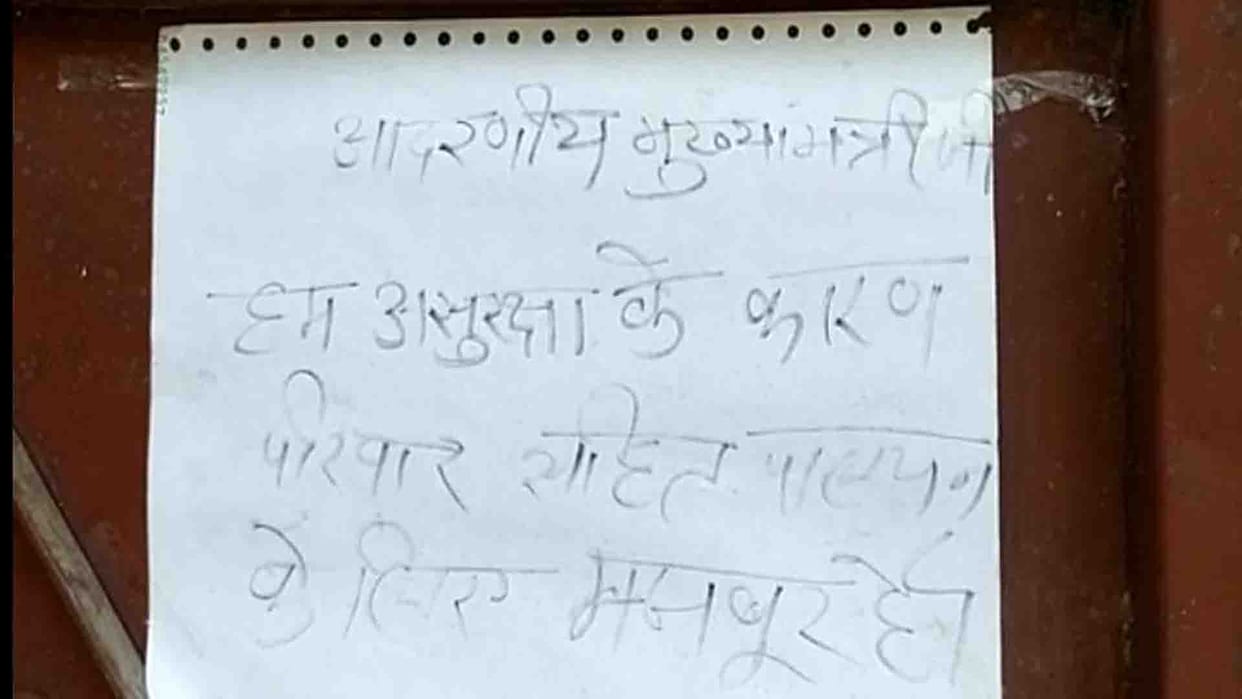 आदरणीय मुख्यामंत्री जी
हम असुरक्षा के कारण
परिवार सहित पालयन
के लिए मजबूर हैं।